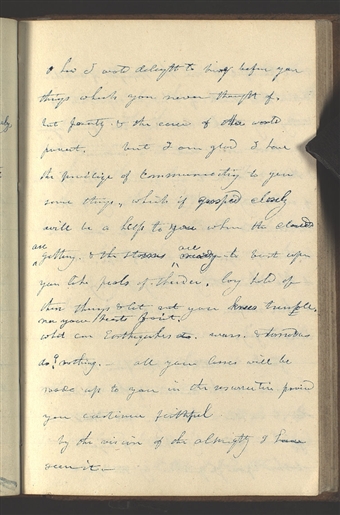 O how I wod delight to bring before you
things which you never thought of,
but poverty & the cares of the world
prevent. but I am glad I have
the privilege of Communicating to you
some things, which if grasped closely
will be a help to you when the clouds
are
gathering, & the storms are ready to burst upon
you like peals of thunder. lay hold of
these things & let not your knees tremble,
nor your hearts faint.
what can Earthquakes do, wars, & tornados
do? nothing. — all your losses will be
made up to you in the resurrection provided
you continue faithful
by the vision of the almighty I have
seen it. —